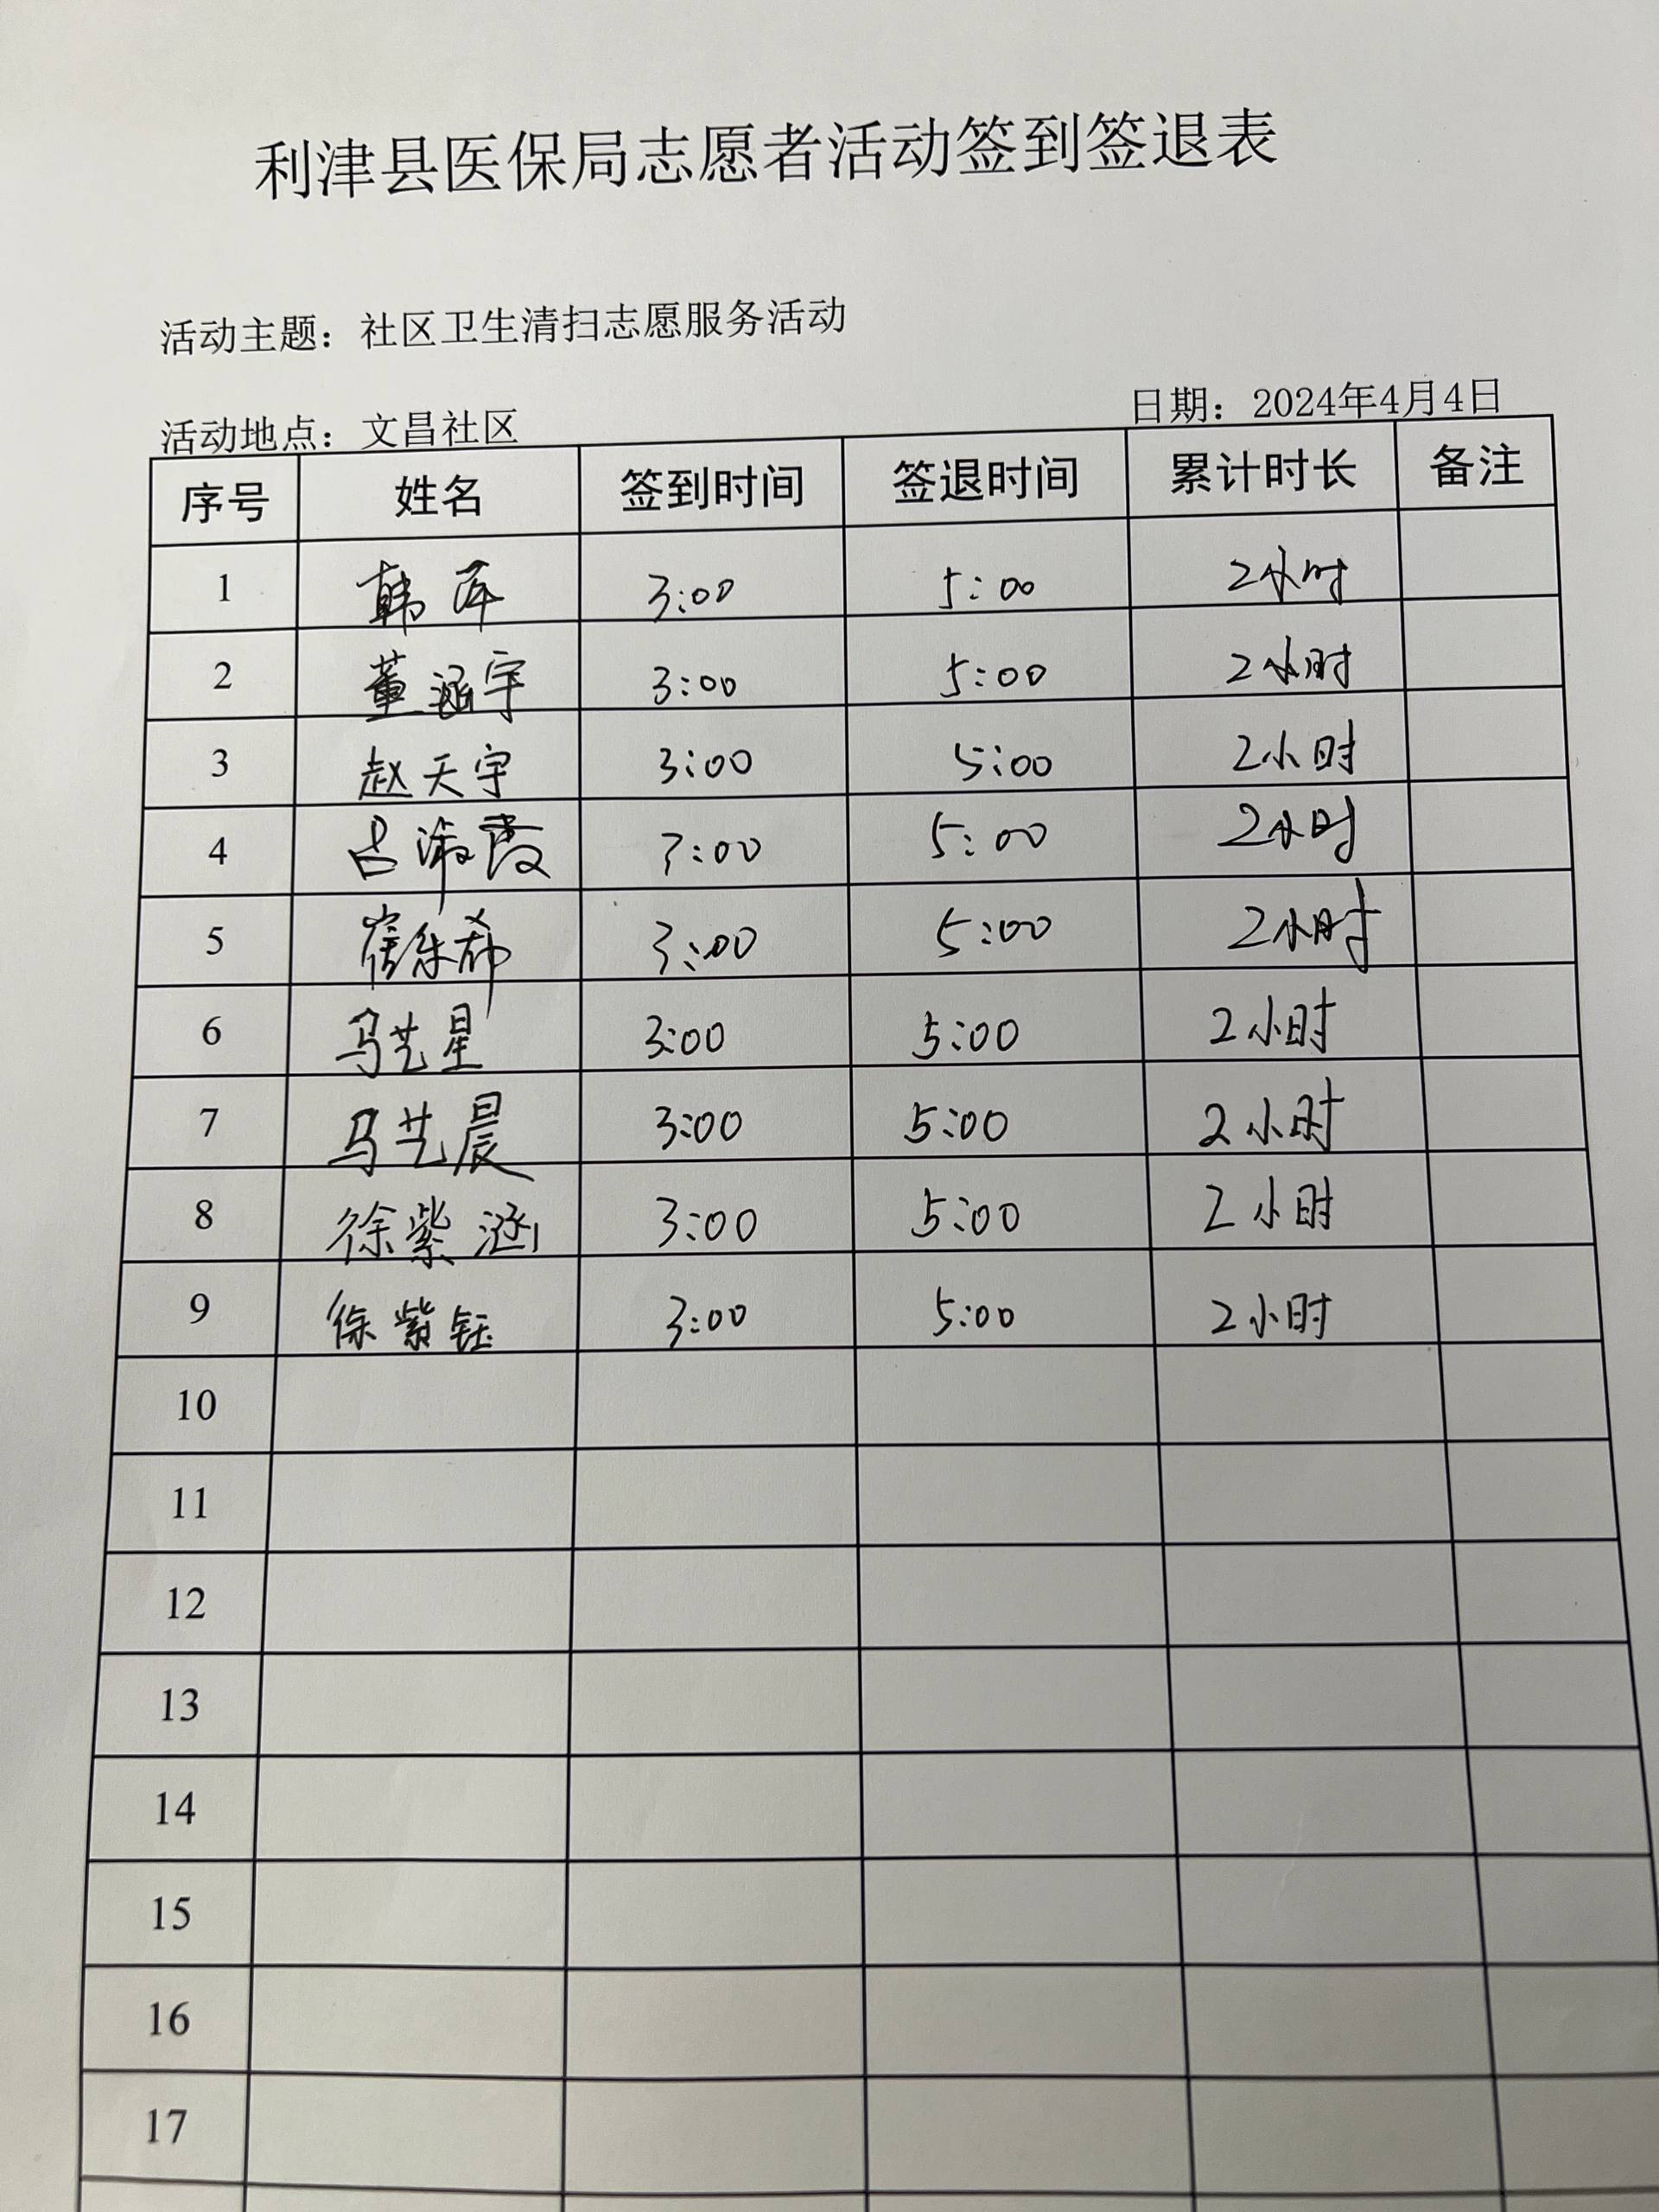 利津县医保局志愿者活动签到签退表
活动主题：社区卫生清扫志愿服务活动
活动地点：文昌社区 日期：2024年4月4日
序号 姓名 签到时间 签退时间 累计时长 备注
1 韩 3:00 5:00 2小时
2 董涵宇 3:00 5:00 2小时
3 赵天宇 3:00 5:00 2小时
4 吕淑霞 3:00 5:00 2小时
5 崔乐希 3:00 5:00 2小时
6 马艺星 3:00 5:00 2小时
7 马艺晨 3:00 5:00 2小时
8 徐紫涵 3:00 5:00 2小时
9 徐紫钰 3:00 5:00 2小时
10
11
12
13
14
15
16
17